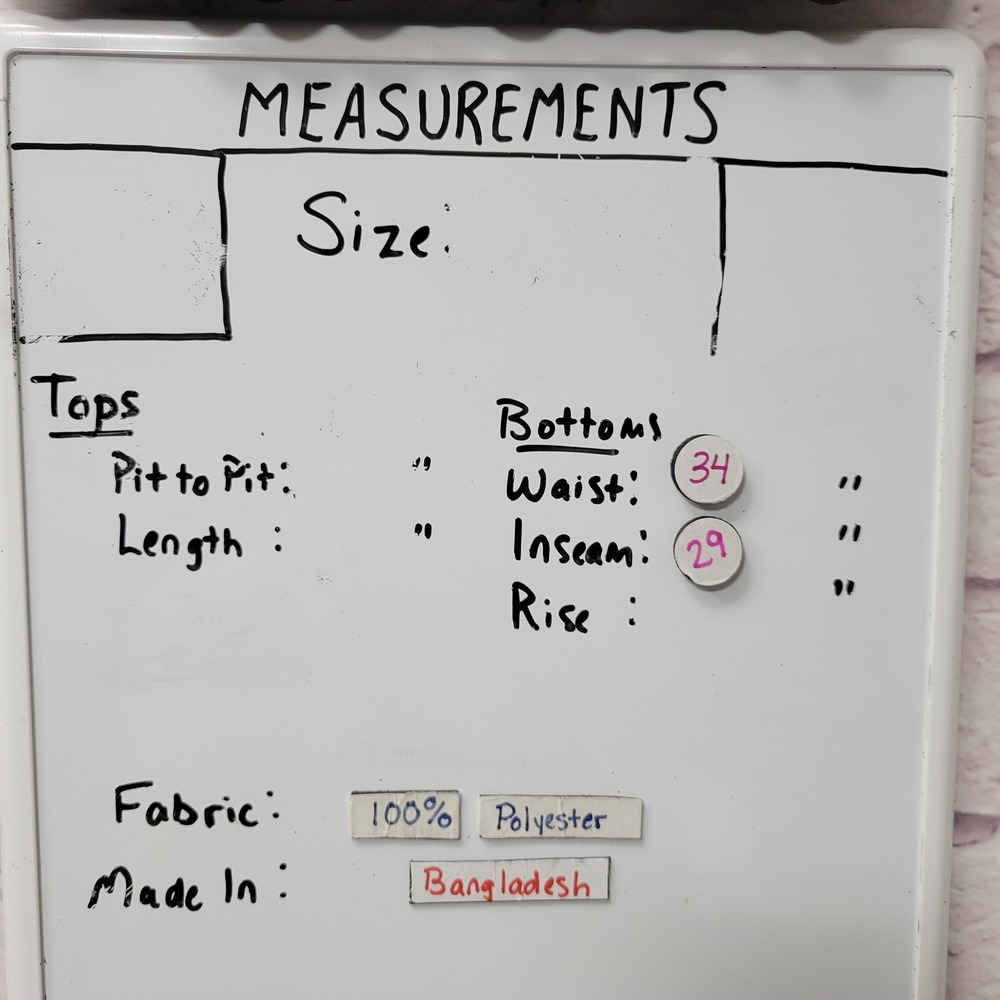 MEASUREMENTS
Size:
Tops
Pit to Pit: "
Length : "
Bottoms
Waist: 34 "
Inseam: 29 "
Rise : "
Fabric: 100% Polyester
Made In: Bangladesh